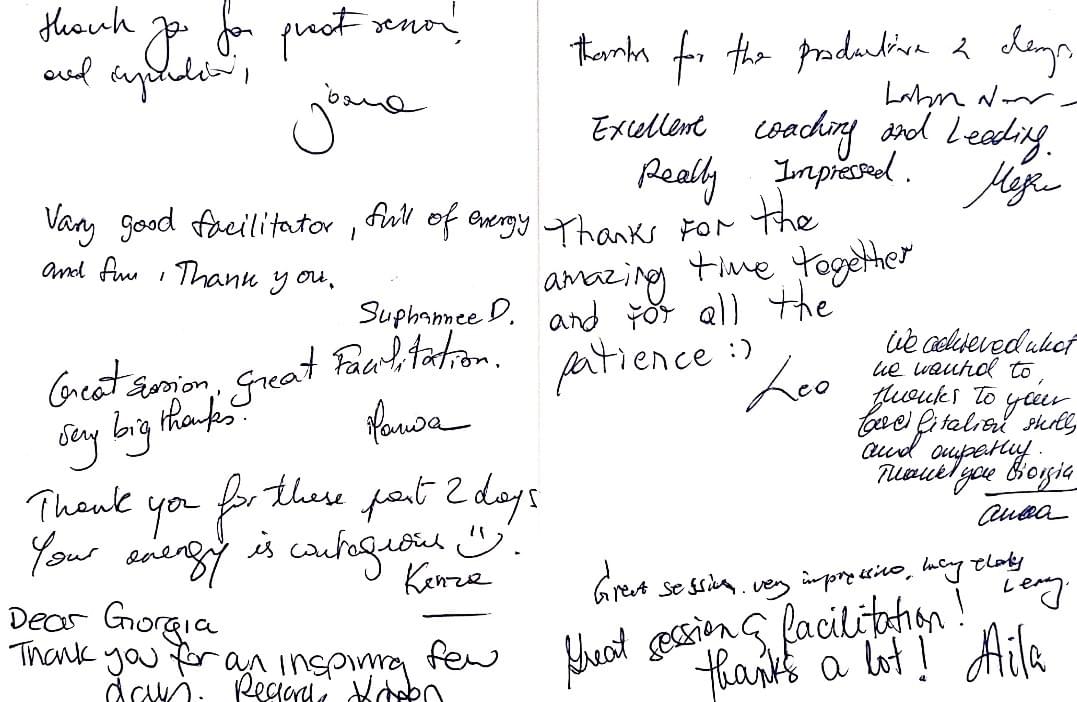 thank you for great
and
Joana
Vary good facilitator, full of energy
and fun, Thank you.
Suphannee D.
Great session, great Facilitation.
very big thanks.
Marwa
Thank you for these past 2 days
Your energy is contagious
Kenza
Dear Giorgia
Thank you for an inspiring few
days.
thanks for the productive 2 days
Excellent coaching and Leading.
Really Impressed.
Thanks for the
amazing time together
and for all the
patience :)
Leo
We achieved what
we wanted to,
thanks to your
facilitation skills
and empathy.
Thank you Giorgia
Great session. very impressive, many thanks
Great session & facilitation!
thanks a lot! Aila